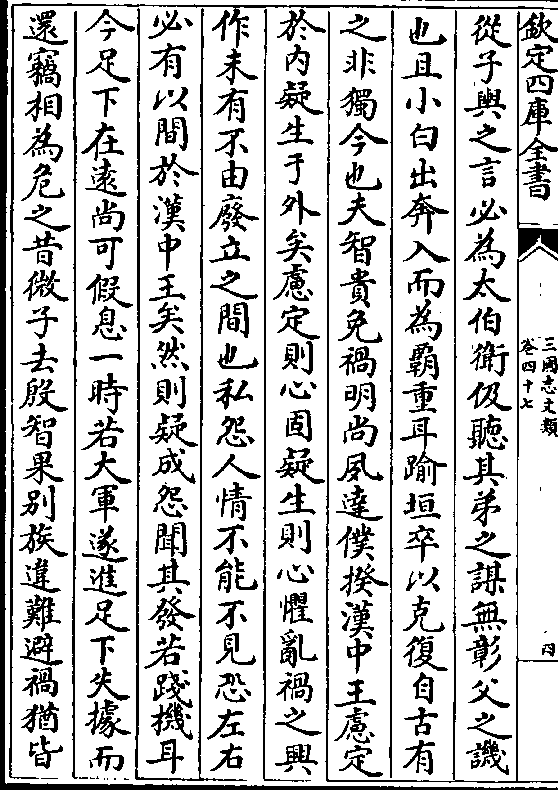 欽定四庫全書
三國志文類
卷四十七
四
從子輿之言必為太伯衛伋聽其弟之謀無彰父之譏
也且小白出奔入而為霸重耳踰垣卒以克復自古有
之非獨今也夫智貴免禍明尚夙達僕揆漢中王慮定
於内疑生于外矣慮定則心固疑生則心懼亂禍之興
作未有不由廢立之間也私怨人情不能不見恐左右
必有以間於漢中王矣然則疑成怨聞其發若踐機耳
今足下在逺尚可假息一時若大軍遂進足下失據而
還竊相為危之昔微子去殷智果别族違難避禍猶皆